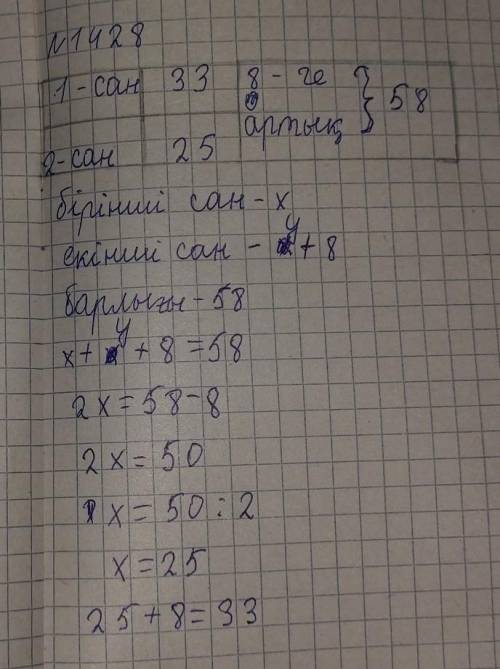 №1428
1-сан 33 8-ге
артық } 58
2-сан 25
бірінші сан - х
екінші сан - у + 8
барлығы - 58
х + у + 8 = 58
2х = 58 - 8
2х = 50
х = 50 : 2
х = 25
25 + 8 = 33